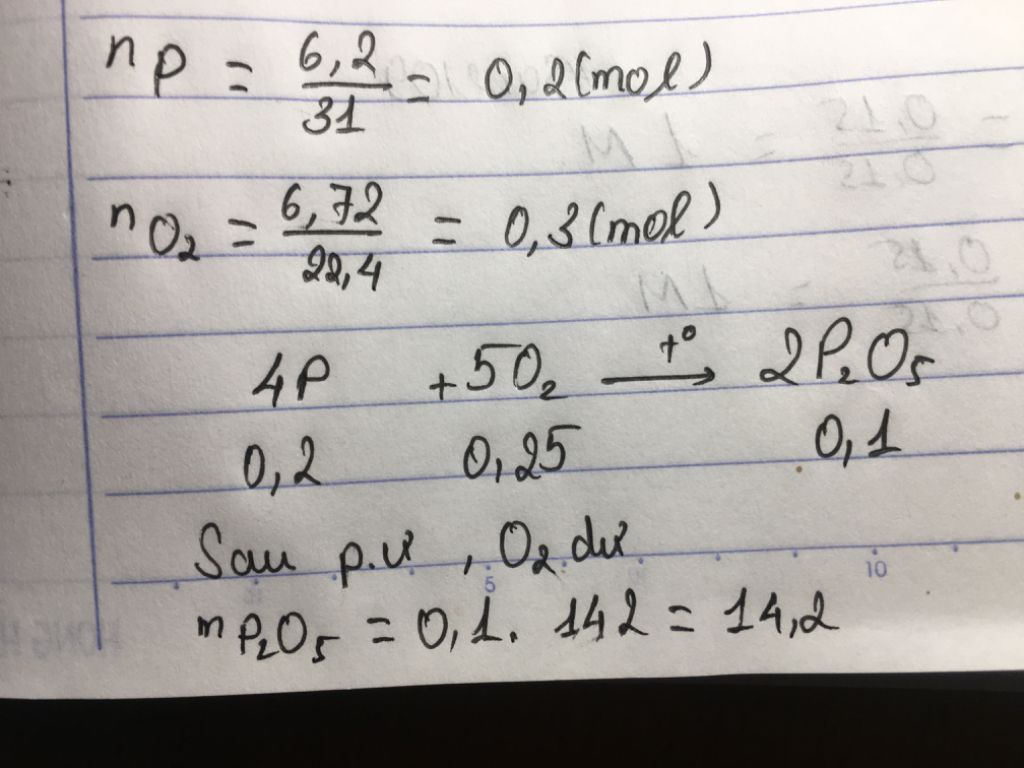 nP = 6,2/31 = 0,2(mol)
nO₂ = 6,72/22,4 = 0,3(mol)
4P + 5O₂ →(t°) 2P₂O₅
0,2 0,25 0,1
Sau p.ư , O₂ dư
5 10
mP₂O₅ = 0,1. 142 = 14,2